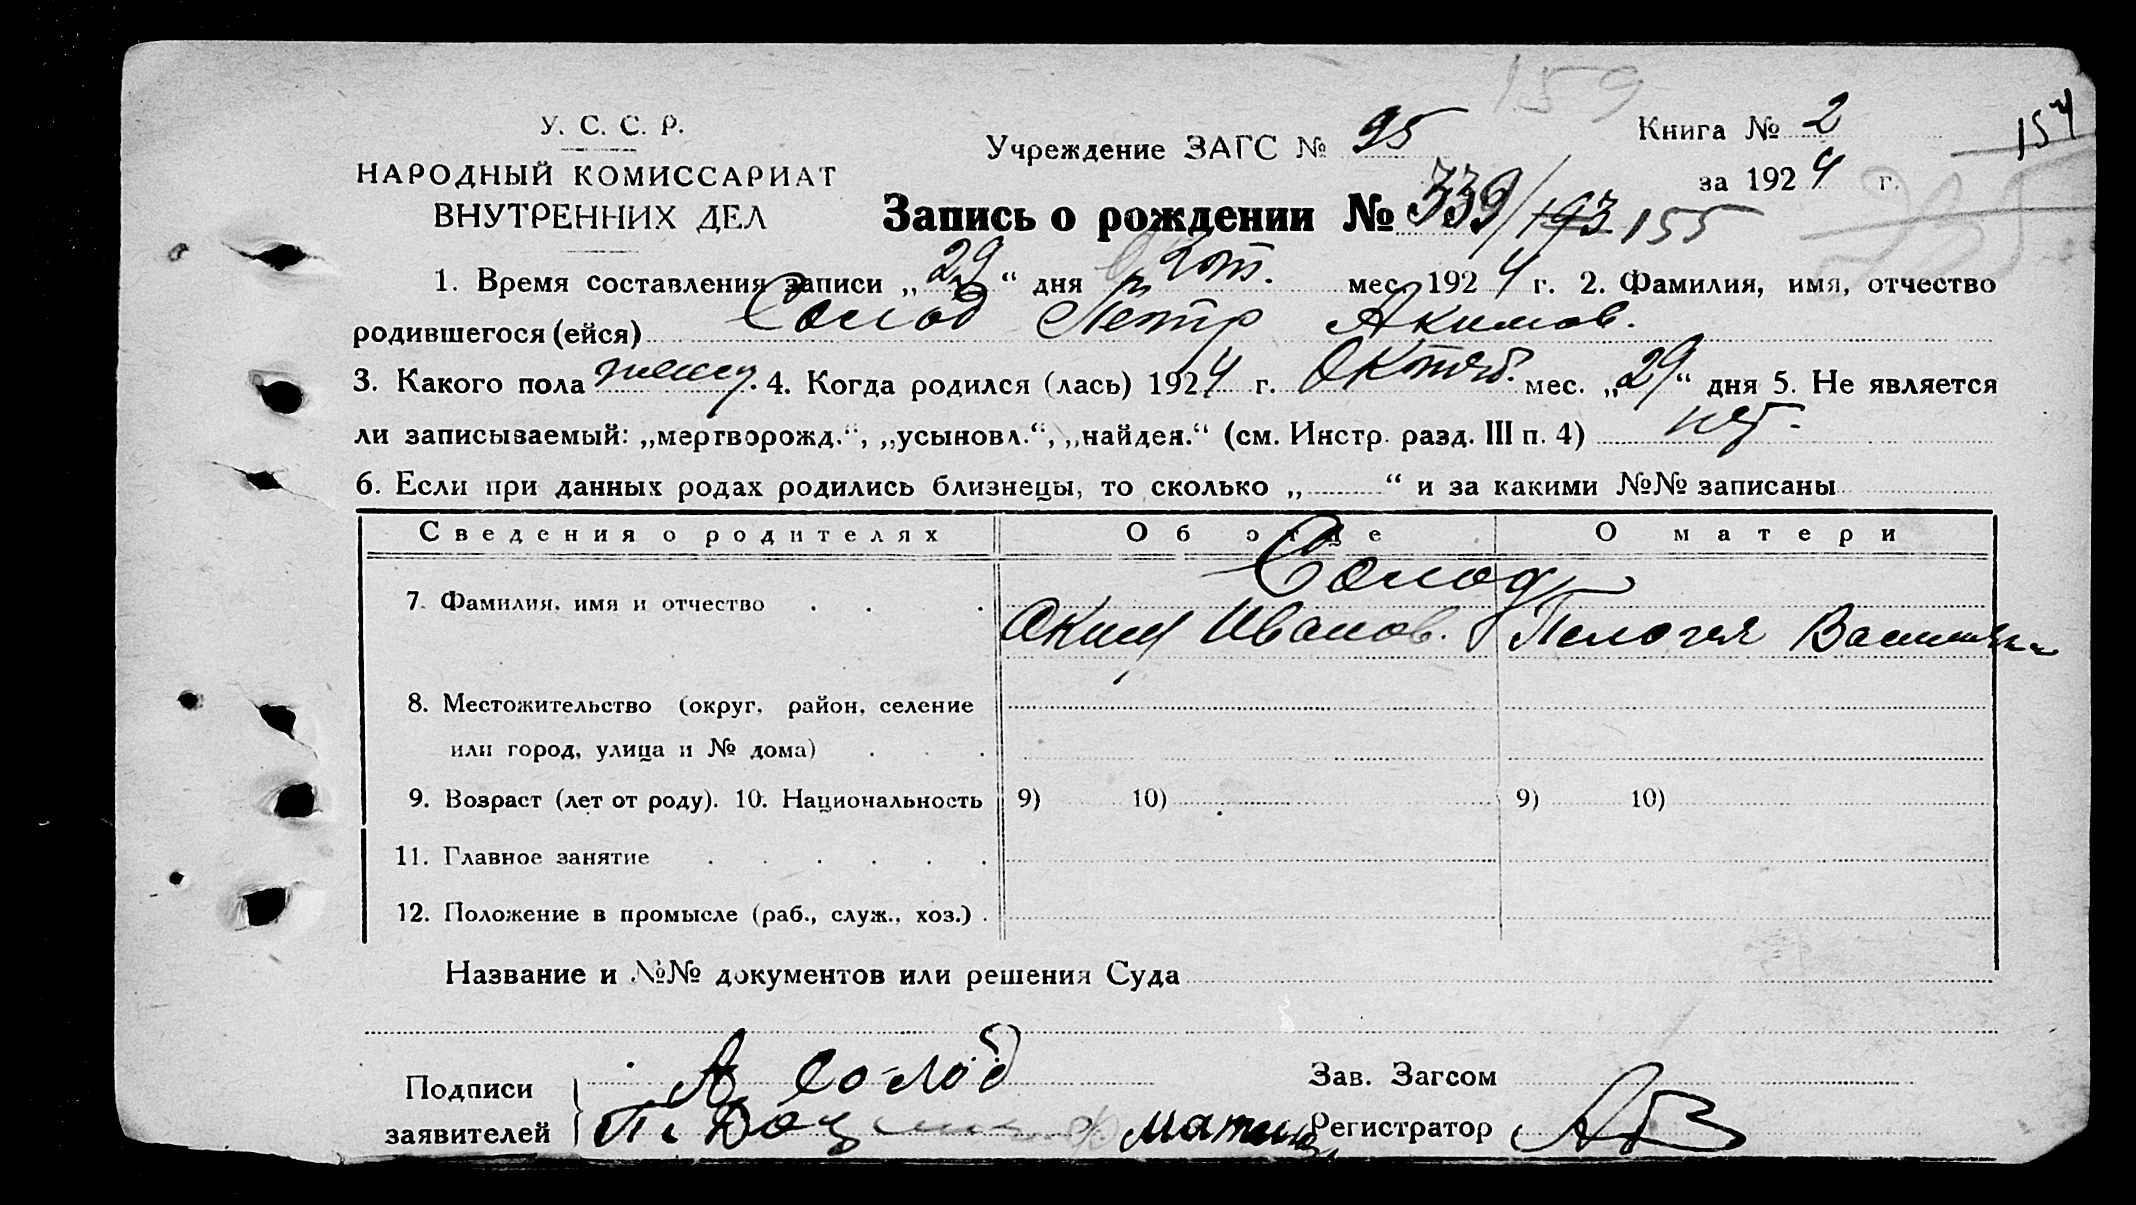 159
У. С. С. Р.
Учреждение ЗАГС № 95
Книга № 2
154
НАРОДНЫЙ КОМИССАРИАТ
за 1924 г.
ВНУТРЕННИХ ДЕЛ
Запись о рождении № 339/193 155
1. Время составления записи „29“ дня мес. 1924 г. 2. Фамилия, имя, отчество
родившегося (ейся) Солод Петр Акимов.
3. Какого пола 4. Когда родился (лась) 1924 г. Октяб. мес. „29“ дня 5. Не является
ли записываемый: „мертворожд.“, „усыновл.“, „найден.“ (см. Инстр. разд. III п. 4) нет.
6. Если при данных родах родились близнецы, то сколько „ “ и за какими №№ записаны
Сведения о родителях Об отце О матери
Солод
7. Фамилия, имя и отчество Аким Иванов. Пелогея
8. Местожительство (округ, район, селение
или город, улица и № дома)
9. Возраст (лет от роду). 10. Национальность 9) 10) 9) 10)
11. Главное занятие
12. Положение в промысле (раб., служ., хоз.)
Название и №№ документов или решения Суда
Подписи А Солод Зав. Загсом
заявителей Регистратор